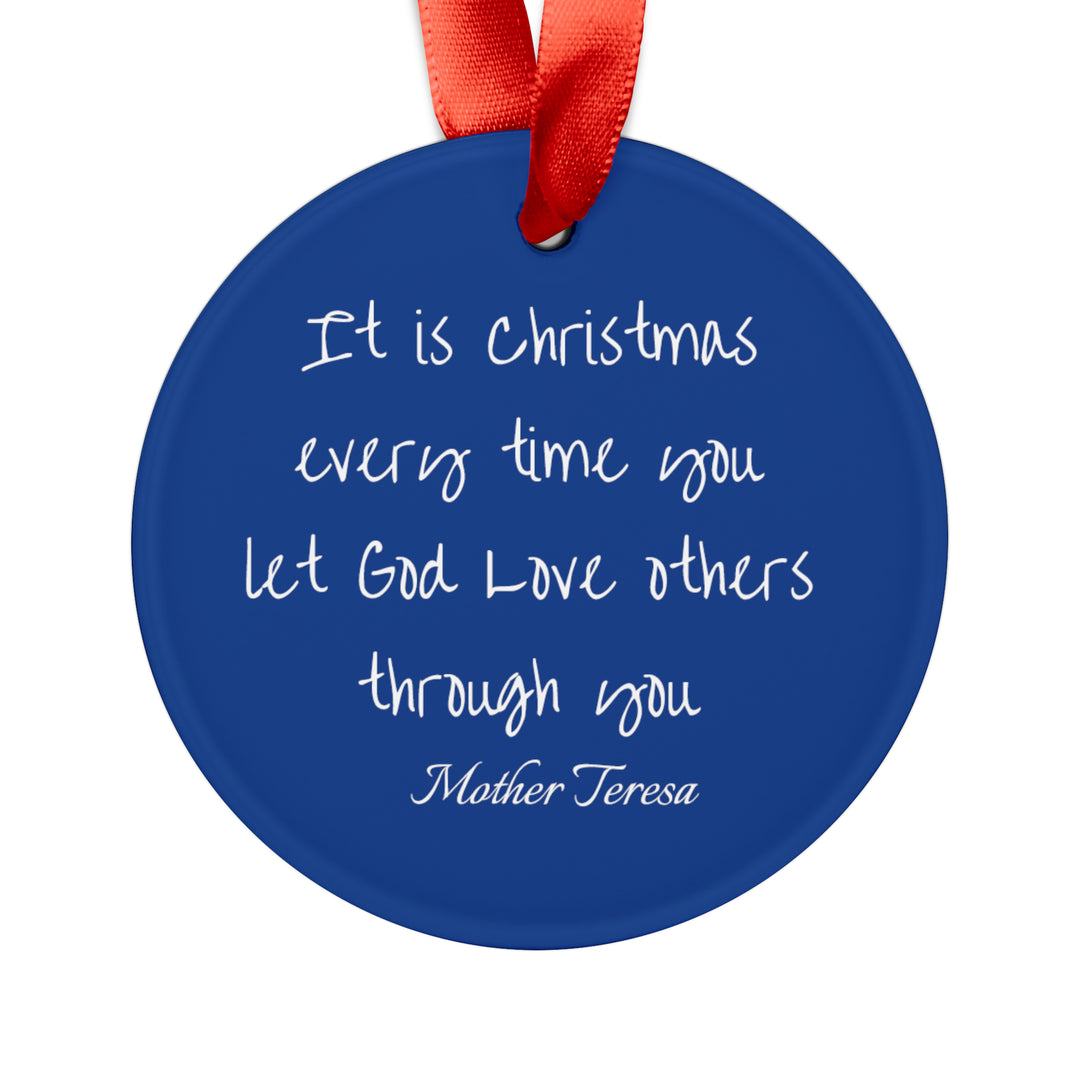 It is Christmas
every time you
let God Love others
through you
Mother Teresa